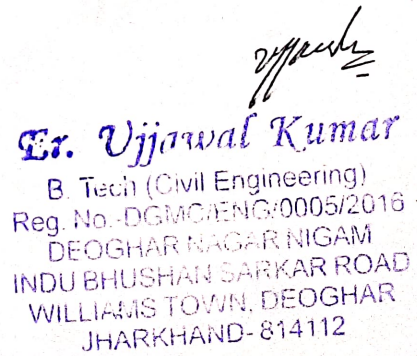 Er. Ujjawal Kumar
B. Tech (Civil Engineering)
Reg. No.-DGMC/ENG/0005/2016
DEOGHAR NAGAR NIGAM
INDU BHUSHAN SARKAR ROAD
WILLIAMS TOWN, DEOGHAR
JHARKHAND-814112